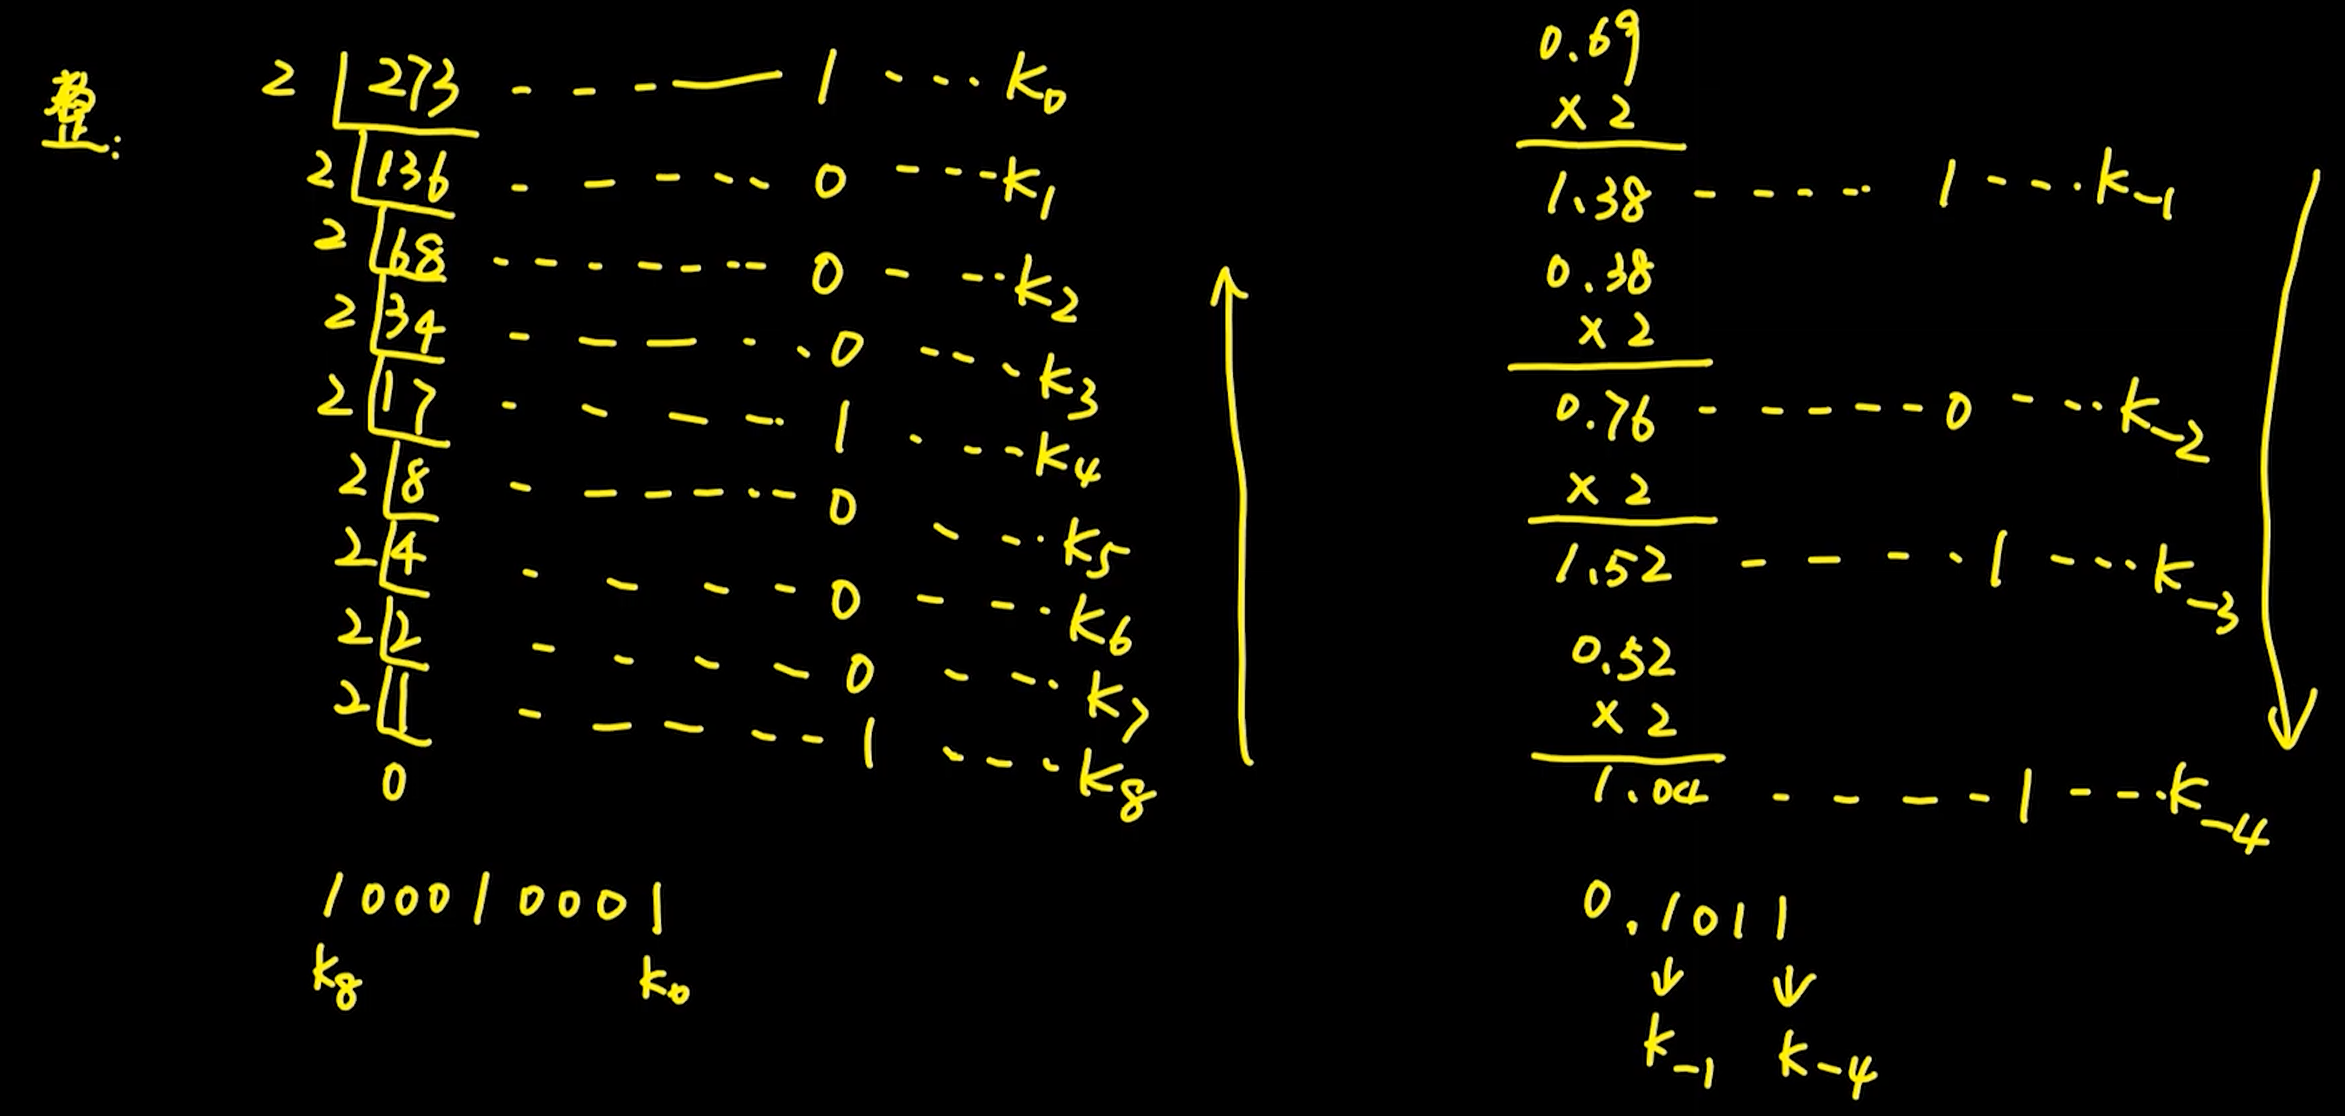 整:
2 273 - - - — 1 --- k0
2 136 - - - - - 0 --- k1
2 68 - - - - - - - - 0 - -- k2
2 34 - - - - - 0 --- k3
2 17 - - - - 1 --- k4
2 8 - - - - - - 0 --- k5
2 4 - - - - 0 --- k6
2 2 - - - - 0 --- k7
2 1 - - - - - 1 --- k8
0
100010001
k8 k0
0.69
× 2
1.38 - - - - - 1 --- k-1
0.38
× 2
0.76 - - - - - - 0 --- k-2
× 2
1.52 - - - - 1 --- k-3
0.52
× 2
1.04 - - - - 1 --- k-4
0.1011
↓ ↓
k-1 k-4